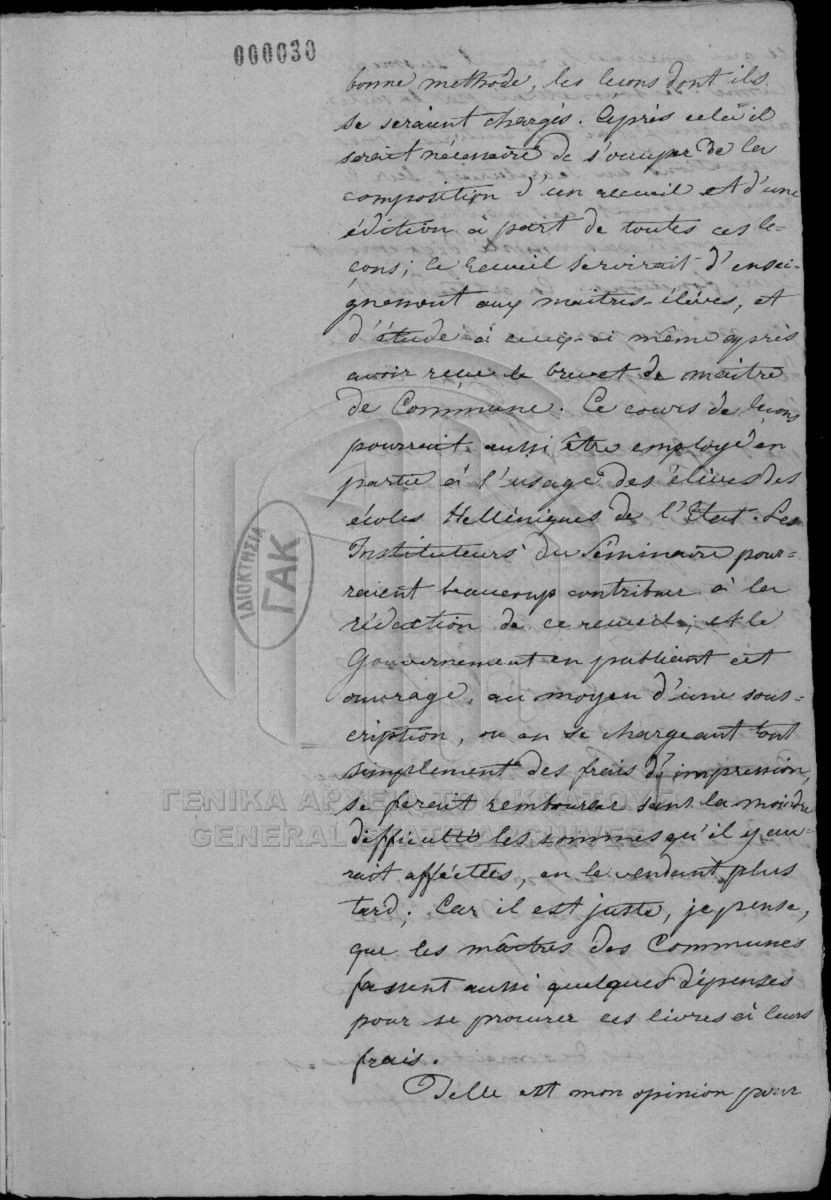 000030
bonne methode, les leçons dont ils
se seraient chargés. Après cela il
serait nécessaire de s'occuper de la
composition d'un recueil et d'une
édition à part de toutes ces le-
çons; ce recueil servirait d'ensei-
gnement aux maitres-élèves, et
d'étude à ceux-ci même après
avoir reçu le brevet de maitre
de Commune. Ce cours de leçons
pourrait aussi être employé en
partie à l'usage des élèves des
écoles Helléniques de l'Etat. Les
Instituteurs du Séminaire pour-
raient beaucoup contribuer à la
rédaction de ce recueil; et le
Gouvernement en publiant cet
ouvrage, au moyen d'une sous-
cription, ou en se chargeant tout
simplement des frais d'impression,
se ferait rembourser sans la moindre
difficulté les sommes qu'il y au-
rait affectées, en le vendant plus
tard; Car il est juste, je pense,
que les maîtres des Communes
fassent aussi quelques dépenses
pour se procurer ces livres à leurs
frais.
Telle est mon opinion pour
ΙΔΙΟΚΤΗΣΙΑ
ΓΑΚ
ΓΕΝΙΚΑ ΑΡΧΕΙΑ ΤΟΥ ΚΡΑΤΟΥΣ
GENERAL STATE ARCHIVES